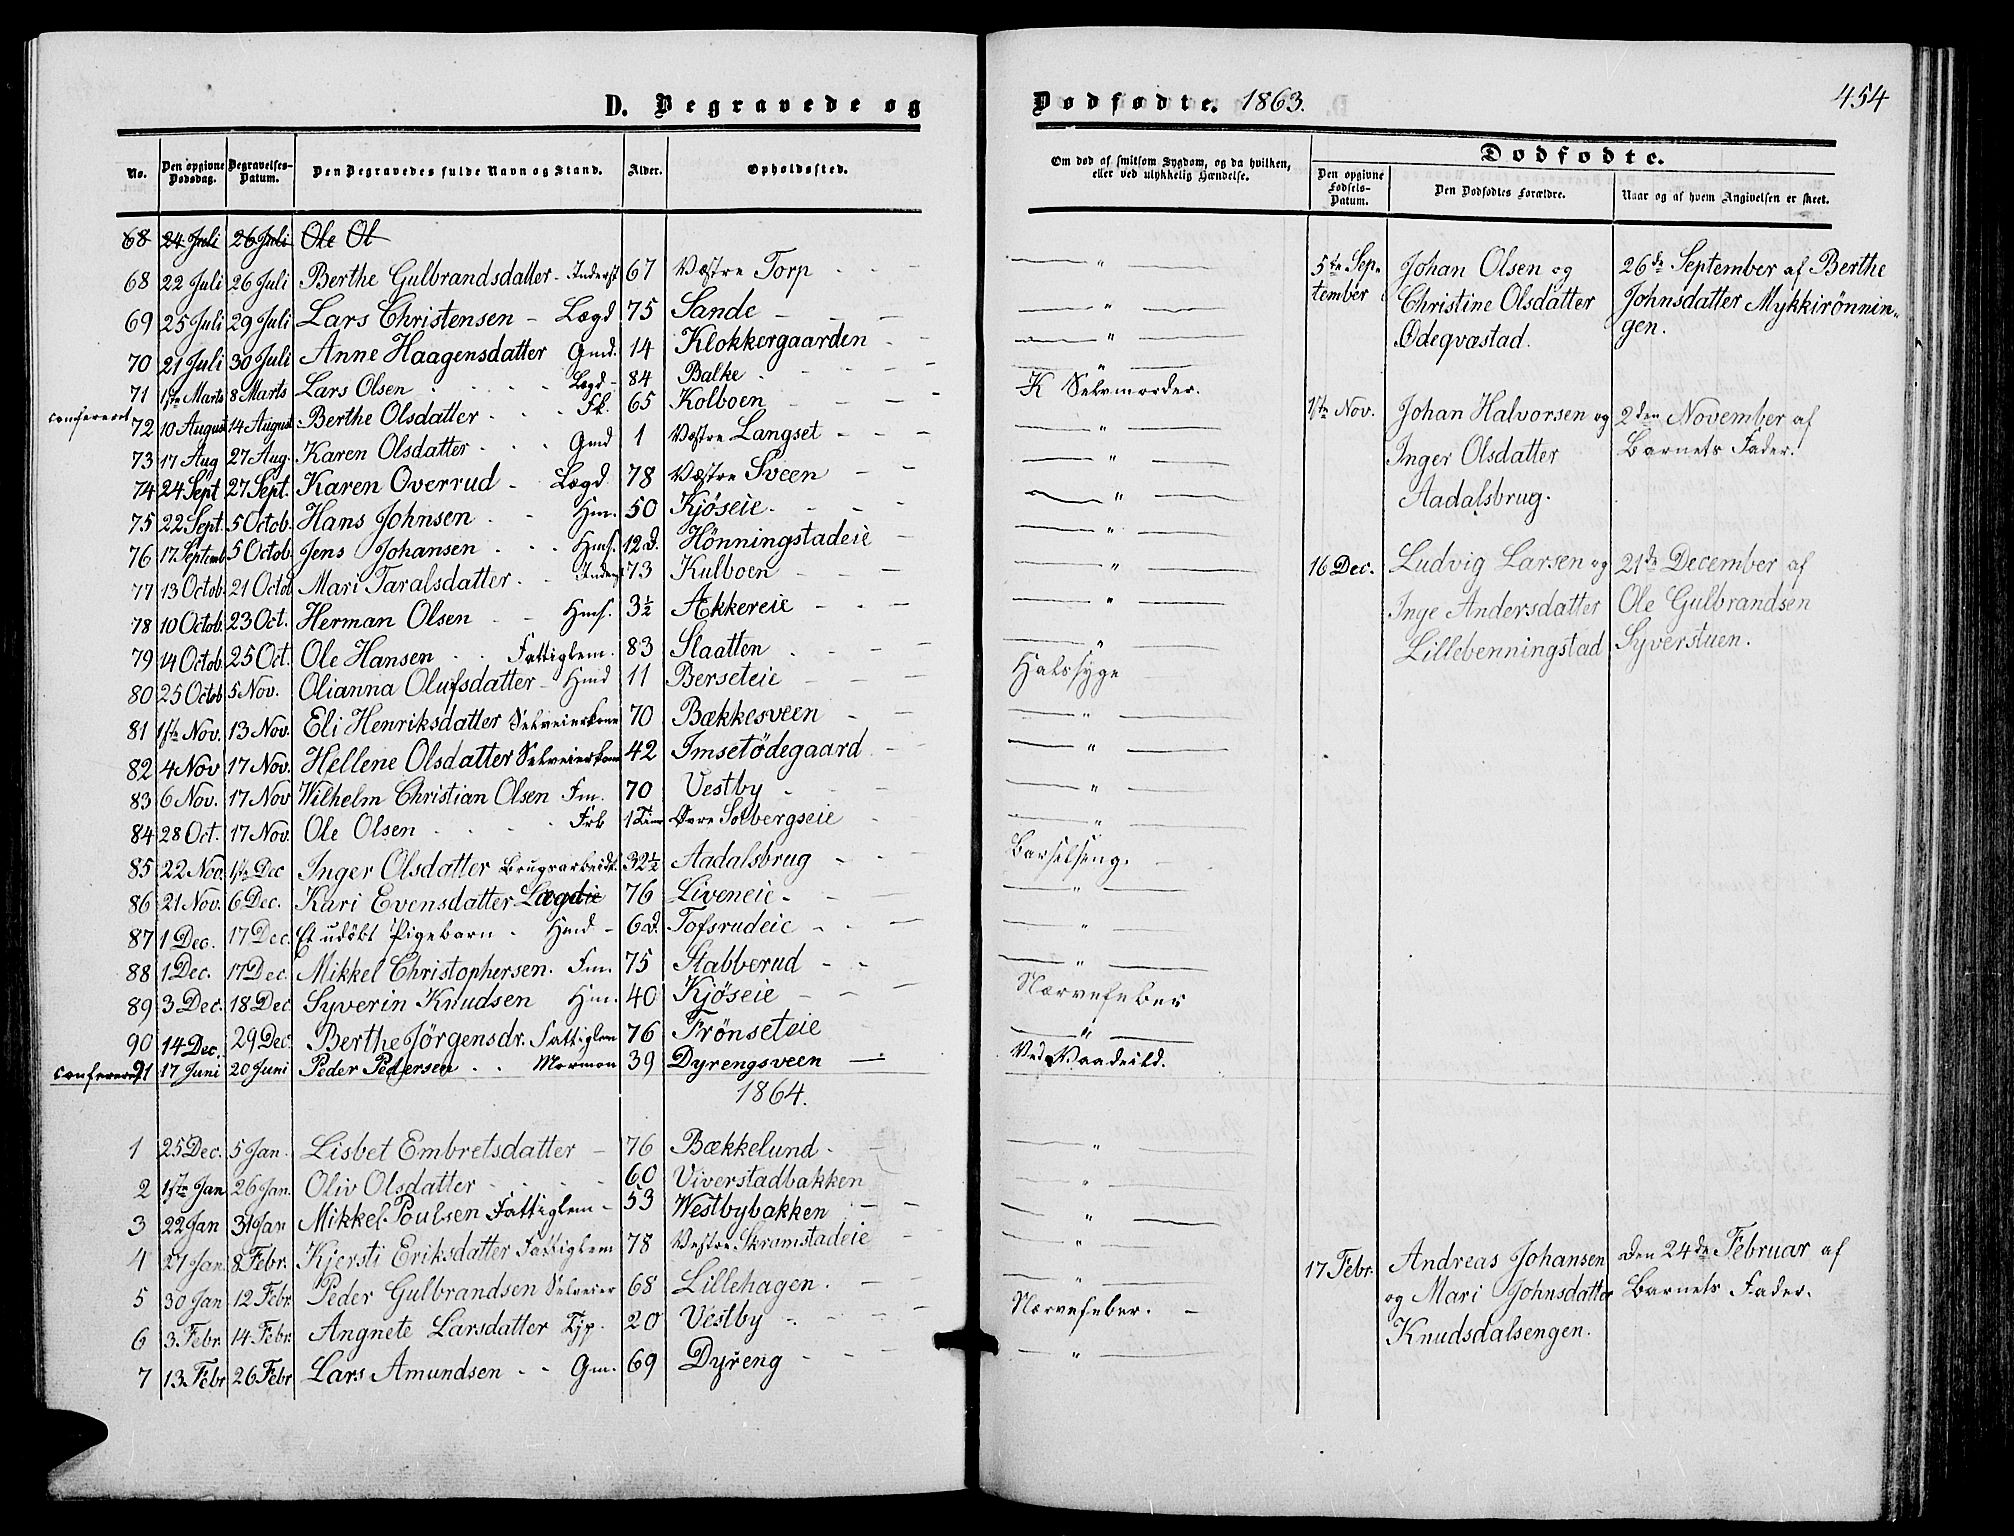 D. Begravede og
Dødfødte. 1863.
454
No.
Den opgivne Dødsdag.
Begravelses-Datum.
Den Begravedes fulde Navn og Stand.
Alder.
Opholdssted.
Om død af smitsom Sygdom, og da hvilken,
eller ved ulykkelig Hændelse.
Dødfødte.
Den opgivne Fødsels-Datum.
Den Dødfødtes Forældre.
Naar og af hvem Angivelsen er skeet.
68 24 Juli 26 Juli Ole Ol
68 22 Juli 26 Juli Berthe Gulbrandsdatter - Inderst 67 Væstre Torp - - - "
69 25 Juli 29 Juli Lars Christensen - Lægd 75 Sande - - - "
70 21 Juli 30 Juli Anne Haagensdatter Gmd. 14 Klokkergaarden - - "
71 1ste Marts 8 Marts Lars Olsen - - - Lægd - 84 Balke - - - "
confereret 72 10 August 14 August Berthe Olsdatter - - - Fk. 65 Kolboen - - - K Selvmorder.
73 17 Aug 27 Aug. Karen Olsdatter - - - Gmd 1 Væstre Langset - - - "
74 24 Sept 27 Sept. Karen Overrud - Lægd 78 Væstre Sveen - - "
75 22 Sept. 5 Octob. Hans Johnsen - - Hm. 50 Kjøseie - - - "
76 17 Septemb 5 Octob. Jens Johansen - - - Hms. 12 D. Hønningstadeie - "
77 13 Octob. 21 Octob Mari Taralsdatter. - - Inderst 73 Kulboen - - - "
78 10 Octob. 23 Oct. Herman Olsen - - Hms. 3½ Akkereie - - - "
79 14 Octob. 25 Oct. Ole Hansen - - Fattiglem. 83 Slaatten - - - - "
80 25 Octob 5 Nov. Olianna Olufsdatter - Hmd 11 Berseteie - - - Halssyge
81 1ste Nov. 13 Nov. Eli Henriksdatter Selveierkone 70 Bækkesveen - - "
82 4 Nov 17 Nov. Hellene Olsdatter Selveierkone 42 Imsetødegaard - - "
83 6 Nov. 17 Nov Wilhelm Christian Olsen Fm. 70 Vestby - - - "
84 28 Oct. 17 Nov. Ole Olsen - - - - Frk 1 Time Øvre Solbergseie - "
85 22 Nov. 1ste Dec Inger Olsdatter Brugsarbeidk. 32½ Aadalsbrug - - - Barselseng. -
86 21 Nov. 6 Dec. Kari Evensdatter Lægdie 76 Liveneie - - - "
87 1 Dec. 17 Dec. Et udøbt Pigebarn - Hmd - 6 D. Tofsrudeie - - - "
88 1 Dec. 17 Dec. Mikkel Christophersen. Fm. 75 Stabberud - - "
89 3 Dec. 18 Dec Syverin Knudsen Hm. 40 Kjøseie - - - Nervefeber
90 14 Dec. 29 Dec. Berthe Jørgensdr. Fattiglem 76 Frønseteie - "
confereret 91 17 Juni 20 Juni Peder Pedersen - - Mormon 39 Dyrengsveen - Ved Vaadeild.
1864.
1 25 Dec. 5 Jan. Lisbet Embretsdatter - 76 Bækkelund - "
2 1ste Jan 26 Jan. Oliv Olsdatter - - - - 60 Viverstadbakken "
3 22 Jan 31 Jan Mikkel Poulsen Fattiglem - 53 Westbybakken - - "
4 27 Jan 8 Febr. Kjersti Eriksdatter Fattiglem 78 Vestre Skramstadeie - "
5 30 Jan 12 Febr Peder Gulbrandsen Selveier 68 Lillehagen. - - "
6 3 Febr. 14 Febr. Angnete Larsdatter Tjp. 20 Vestby - - - Nervefeber. -
7 13 Febr 26 Febr Lars Amundsen - - Gm. 69 Dyreng - - - "
5te September
Johan Olsen og
Christine Olsdatter
Ødeqvæstad.
26de September af Berthe
Johnsdatter Mykkirønnin-
gen.
1ste Nov.
Johan Halvorsen og
Inger Olsdatter
Aadalsbrug.
2den November af
Barnets Fader.
16 Dec.
Ludvig Larsen og
Inge Andersdatter
Lillebenningstad
21de December af
Ole Gulbrandsen
Syverstuen.
17 Febr.
Andreas Johansen
og Mari Johnsdatter
Knudsdalsengen.
Den 24de Februar af
Barnets Fader.